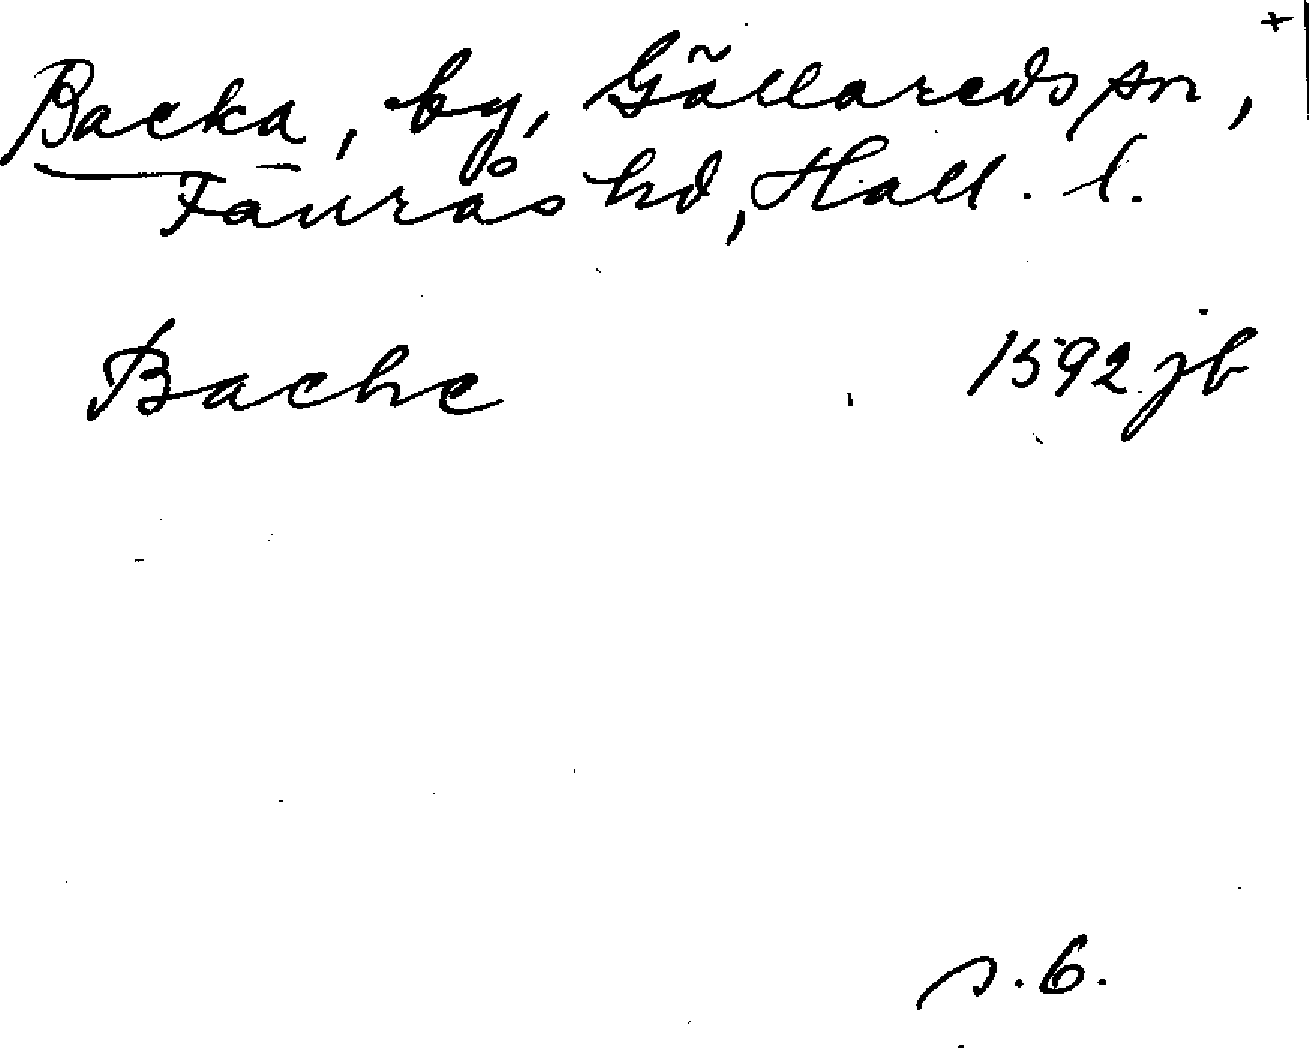 +
Backa, by, Gällareds sn,
Faurås hd, Hall. l.
Bache 1592 jb
s. 6.